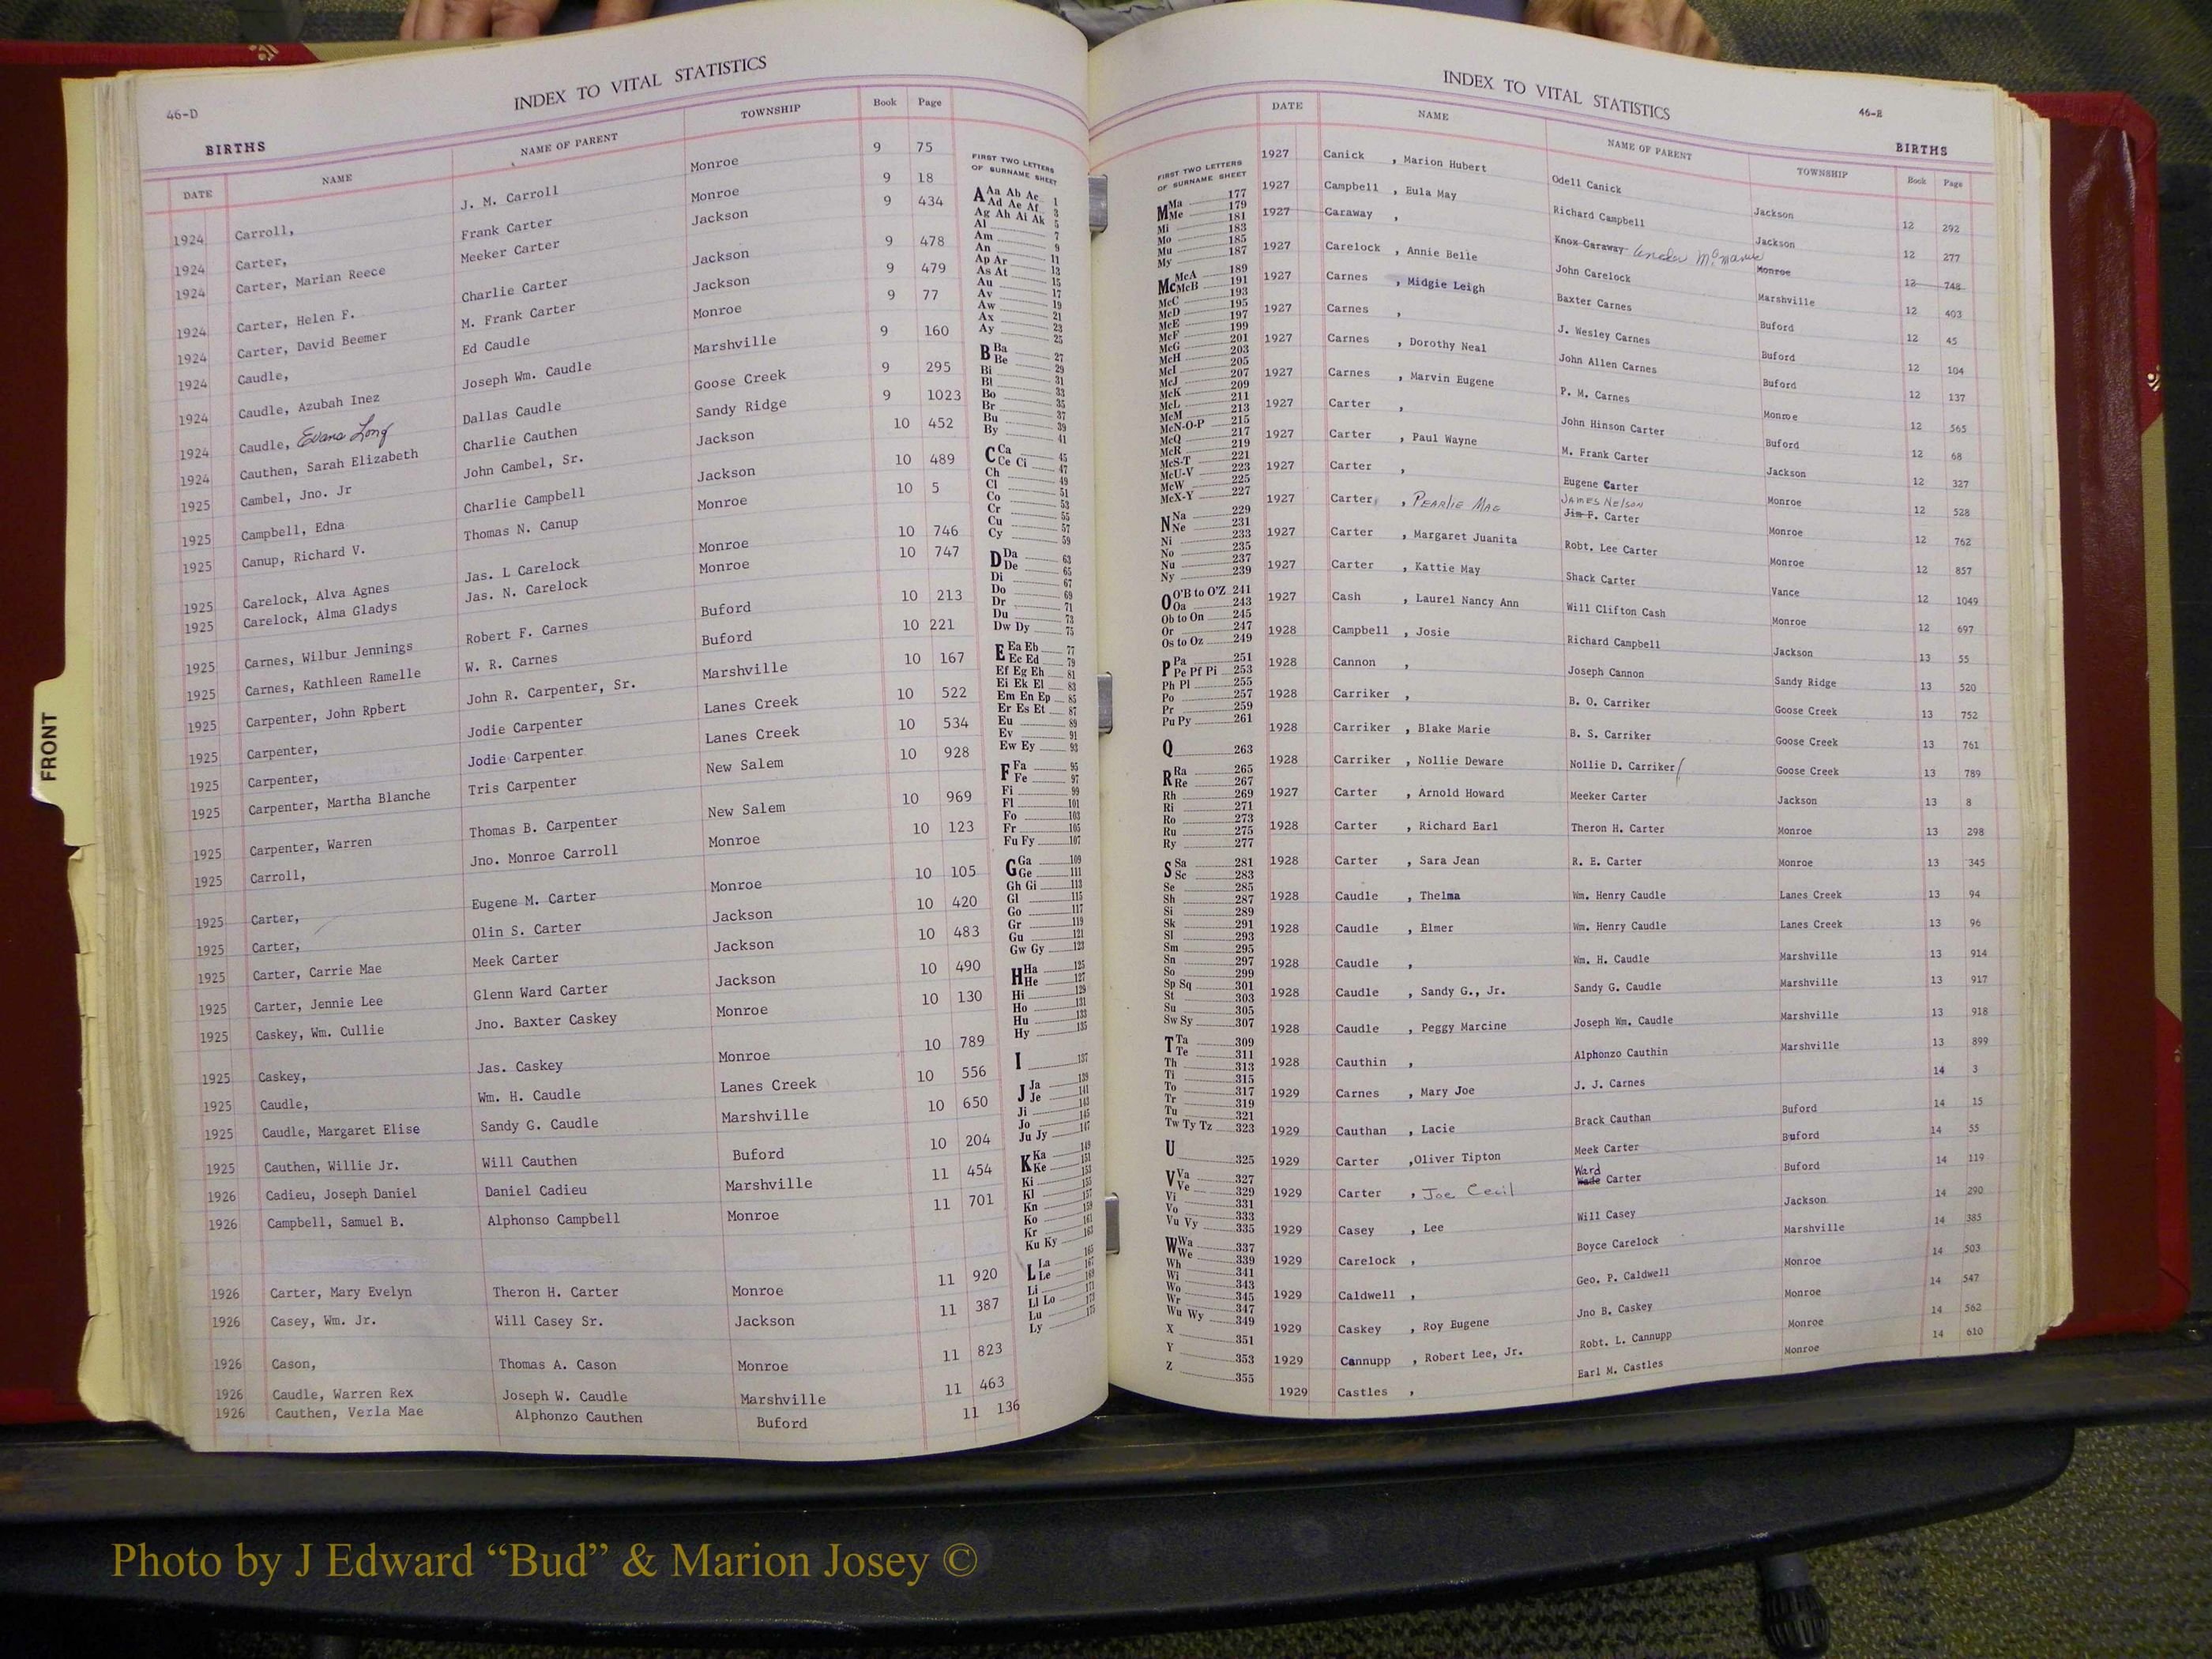 46-D
INDEX TO VITAL STATISTICS
BIRTHS
DATE NAME NAME OF PARENT TOWNSHIP Book Page
1924 Carroll, J. M. Carroll Monroe 9 75
1924 Carter, Frank Carter Monroe 9 18
1924 Carter, Marian Reece Meeker Carter Jackson 9 434
1924 Carter, Helen F. Charlie Carter Jackson 9 478
1924 Carter, David Beemer M. Frank Carter Jackson 9 479
1924 Caudle, Ed Caudle Monroe 9 77
1924 Caudle, Azubah Inez Joseph Wm. Caudle Marshville 9 160
1924 Caudle, Evans Long Dallas Caudle Goose Creek 9 295
1924 Cauthen, Sarah Elizabeth Charlie Cauthen Sandy Ridge 9 1023
1925 Cambel, Jno. Jr John Cambel, Sr. Jackson 10 452
1925 Campbell, Edna Charlie Campbell Jackson 10 489
1925 Canup, Richard V. Thomas N. Canup Monroe 10 5
1925 Carelock, Alva Agnes Jas. L Carelock Monroe 10 746
1925 Carelock, Alma Gladys Jas. N. Carelock Monroe 10 747
1925 Carnes, Wilbur Jennings Robert F. Carnes Buford 10 213
1925 Carnes, Kathleen Ramelle W. R. Carnes Buford 10 221
1925 Carpenter, John Rpbert John R. Carpenter, Sr. Marshville 10 167
1925 Carpenter, Jodie Carpenter Lanes Creek 10 522
1925 Carpenter, Jodie Carpenter Lanes Creek 10 534
1925 Carpenter, Martha Blanche Tris Carpenter New Salem 10 928
1925 Carpenter, Warren Thomas B. Carpenter New Salem 10 969
1925 Carroll, Jno. Monroe Carroll Monroe 10 123
1925 Carter, Eugene M. Carter Monroe 10 105
1925 Carter, Olin S. Carter Jackson 10 420
1925 Carter, Carrie Mae Meek Carter Jackson 10 483
1925 Carter, Jennie Lee Glenn Ward Carter Jackson 10 490
1925 Caskey, Wm. Cullie Jno. Baxter Caskey Monroe 10 130
1925 Caskey, Jas. Caskey Monroe 10 789
1925 Caudle, Wm. H. Caudle Lanes Creek 10 556
1925 Caudle, Margaret Elise Sandy G. Caudle Marshville 10 650
1925 Cauthen, Willie Jr. Will Cauthen Buford 10 204
1926 Cadieu, Joseph Daniel Daniel Cadieu Marshville 11 454
1926 Campbell, Samuel B. Alphonso Campbell Monroe 11 701
1926 Carter, Mary Evelyn Theron H. Carter Monroe 11 920
1926 Casey, Wm. Jr. Will Casey Sr. Jackson 11 387
1926 Cason, Thomas A. Cason Monroe 11 823
1926 Caudle, Warren Rex Joseph W. Caudle Marshville 11 463
1926 Cauthen, Verla Mae Alphonzo Cauthen Buford 11 136
FRONT
FIRST TWO LETTERS
OF SURNAME SHEET
A Aa Ab Ac 1
Ad Ae Af 3
Ag Ah Ai Ak 5
Al 7
Am 9
An 11
Ap Ar 13
As At 15
Au 17
Av 19
Aw 21
Ax 23
Ay 25
B Ba 27
Be 29
Bi 31
Bl 33
Bo 35
Br 37
Bu 39
By 41
C Ca 45
Ce Ci 47
Ch 49
Cl 51
Co 53
Cr 55
Cu 57
Cy 59
D Da 63
De 65
Di 67
Do 69
Dr 71
Du 73
Dw Dy 75
E Ea Eb 77
Ec Ed 79
Ef Eg Eh 81
Ei Ek El 83
Em En Ep 85
Er Es Et 87
Eu 89
Ev 91
Ew Ey 93
F Fa 95
Fe 97
Fi 99
Fl 101
Fo 103
Fr 105
Fu Fy 107
G Ga 109
Ge 111
Gh Gi 113
Gl 115
Go 117
Gr 119
Gu 121
Gw Gy 123
H Ha 125
He 127
Hi 129
Ho 131
Hu 133
Hy 135
I 137
J Ja 139
Je 141
Ji 143
Jo 145
Ju Jy 147
K Ka 149
Ke 151
Ki 153
Kl 155
Kn 157
Ko 159
Kr 161
Ku Ky 163
L La 165
Le 167
Li 169
Ll Lo 171
Lu 173
Ly 175
INDEX TO VITAL STATISTICS
46-E
BIRTHS
DATE NAME NAME OF PARENT TOWNSHIP Book Page
FIRST TWO LETTERS
OF SURNAME SHEET
M Ma 177
Me 179
Mi 181
Mo 183
Mu 185
My 187
Mc McA 189
McB 191
McC 193
McD 195
McE 197
McF 199
McG 201
McH 203
McI 205
McJ 207
McK 209
McL 211
McM 213
McN-O-P 215
McQ 217
McR 219
McS-T 221
McU-V 223
McW 225
McX-Y 227
N Na 229
Ne 231
Ni 233
No 235
Nu 237
Ny 239
O O'B to O'Z 241
Oa 243
Ob to On 245
Or 247
Os to Oz 249
P Pa 251
Pe Pf Pi 253
Ph Pl 255
Po 257
Pr 259
Pu Py 261
Q 263
R Ra 265
Re 267
Rh 269
Ri 271
Ro 273
Ru 275
Ry 277
S Sa 281
Sc 283
Se 285
Sh 287
Si 289
Sk 291
Sl 293
Sm 295
Sn 297
So 299
Sp Sq 301
St 303
Su 305
Sw Sy 307
T Ta 309
Te 311
Th 313
Ti 315
To 317
Tr 319
Tu 321
Tw Ty Tz 323
U 325
V Va 327
Ve 329
Vi 331
Vo 333
Vu Vy 335
W Wa 337
We 339
Wh 341
Wi 343
Wo 345
Wr 347
Wu Wy 349
X 351
Y 353
Z 355
1927 Canick , Marion Hubert Odell Canick Jackson 12 292
1927 Campbell , Eula May Richard Campbell Jackson 12 277
1927 Caraway , Knox Caraway under McManus Monroe 12 748
1927 Carelock , Annie Belle John Carelock Marshville 12 403
1927 Carnes , Midgie Leigh Baxter Carnes Buford 12 45
1927 Carnes , J. Wesley Carnes Buford 12 104
1927 Carnes , Dorothy Neal John Allen Carnes Buford 12 137
1927 Carnes , Marvin Eugene P. M. Carnes Monroe 12 565
1927 Carter , John Hinson Carter Buford 12 68
1927 Carter , Paul Wayne M. Frank Carter Jackson 12 327
1927 Carter , Eugene Carter Monroe 12 528
1927 Carter , Pearlie Mae James Nelson Jim F. Carter Monroe 12 762
1927 Carter , Margaret Juanita Robt. Lee Carter Monroe 12 857
1927 Carter , Kattie May Shack Carter Vance 12 1049
1927 Cash , Laurel Nancy Ann Will Clifton Cash Monroe 12 697
1928 Campbell , Josie Richard Campbell Jackson 13 55
1928 Cannon , Joseph Cannon Sandy Ridge 13 520
1928 Carriker , B. O. Carriker Goose Creek 13 752
1928 Carriker , Blake Marie B. S. Carriker Goose Creek 13 761
1928 Carriker , Nollie Deware Nollie D. Carriker Goose Creek 13 789
1927 Carter , Arnold Howard Meeker Carter Jackson 13 8
1928 Carter , Richard Earl Theron H. Carter Monroe 13 298
1928 Carter , Sara Jean R. E. Carter Monroe 13 345
1928 Caudle , Thelma Wm. Henry Caudle Lanes Creek 13 94
1928 Caudle , Elmer Wm. Henry Caudle Lanes Creek 13 96
1928 Caudle , Wm. H. Caudle Marshville 13 914
1928 Caudle , Sandy G., Jr. Sandy G. Caudle Marshville 13 917
1928 Caudle , Peggy Marcine Joseph Wm. Caudle Marshville 13 918
1928 Cauthin , Alphonzo Cauthin Marshville 13 899
1929 Carnes , Mary Joe J. J. Carnes 14 3
1929 Cauthan , Lacie Brack Cauthan Buford 14 15
1929 Carter ,Oliver Tipton Meek Carter Buford 14 55
1929 Carter , Joe Cecil Ward Wade Carter Buford 14 119
1929 Casey , Lee Will Casey Jackson 14 290
1929 Carelock , Boyce Carelock Marshville 14 385
1929 Caldwell , Geo. P. Caldwell Monroe 14 503
1929 Caskey , Roy Eugene Jno B. Caskey Monroe 14 547
1929 Cannupp , Robert Lee, Jr. Robt. L. Cannupp Monroe 14 562
1929 Castles , Earl M. Castles Monroe 14 610
Photo by J Edward “Bud” & Marion Josey ©